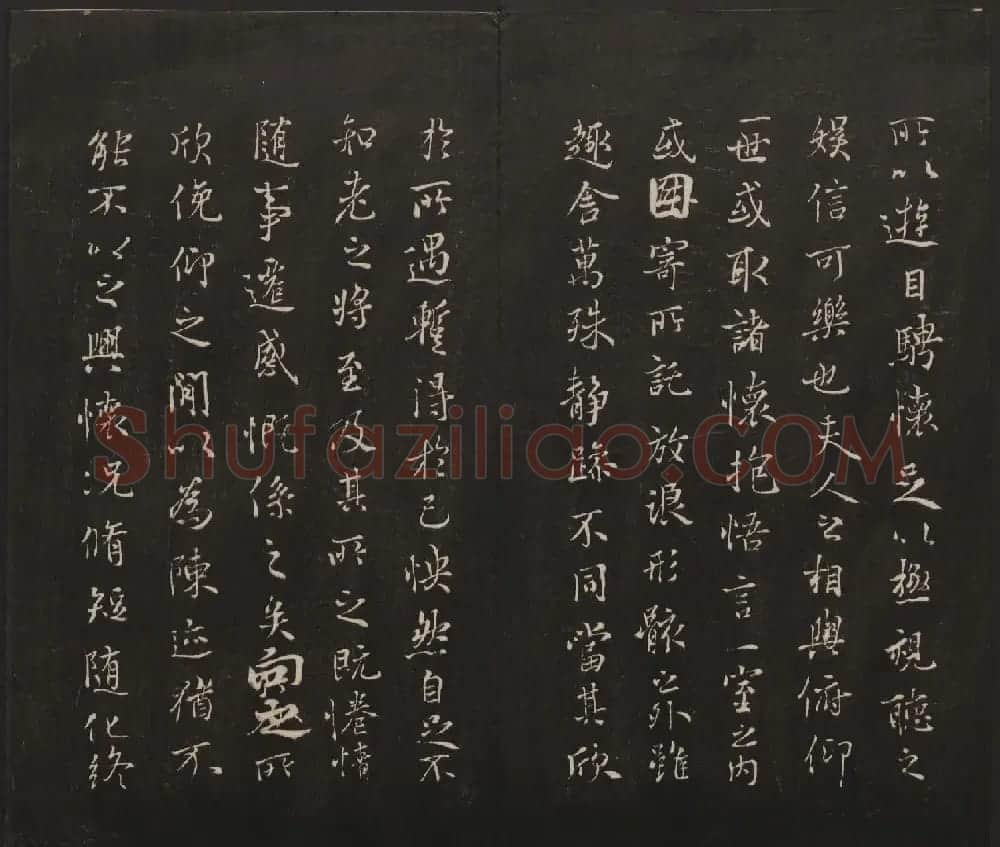 所以遊目騁懷足以極視聽之
娛信可樂也夫人之相與俯仰
一世或取諸懷抱悟言一室之內
或因寄所託放浪形骸之外雖
趣舍萬殊靜躁不同當其欣
於所遇暫得於己怏然自足不
知老之將至及其所之既惓情
随事遷感慨係之矣向之所
欣俛仰之閒以為陳迹猶不
能不以之興懷況脩短随化終
Shufaziliao.COM